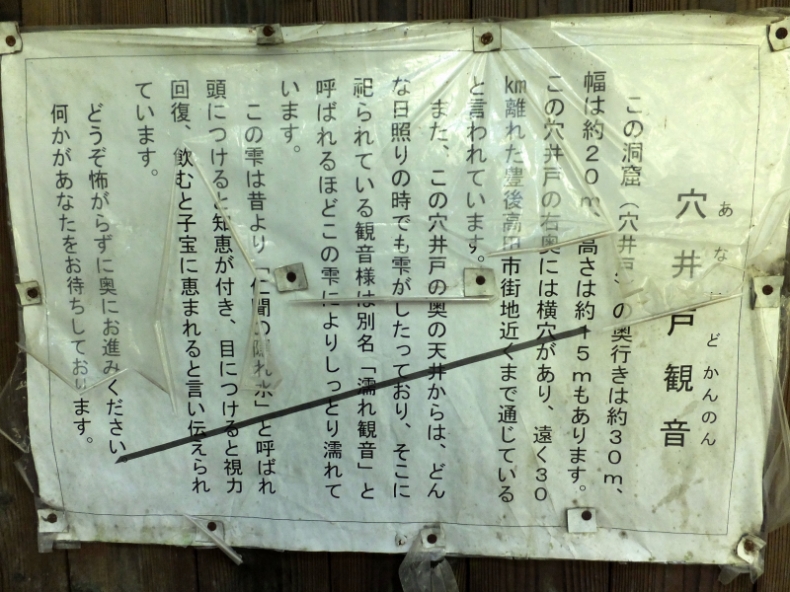 あな ど かんのん
穴井戸観音
この洞窟（穴井戸）の奥行きは約30m、
幅は約20m、高さは約15mもあります。
この穴井戸の右奥には横穴があり、遠く30
km離れた豊後高田市街地近くまで通じている
と言われています。
また、この穴井戸の奥の天井からは、どん
な日照りの時でも雫がしたっており、そこに
祀られている観音様は別名「濡れ観音」と
呼ばれるほどこの雫によりしっとり濡れて
います。
この雫は昔より「仁聞の隠れ水」と呼ばれ
頭につけると知恵が付き、目につけると視力
回復、飲むと子宝に恵まれると言い伝えられ
ています。
どうぞ怖がらずに奥にお進みください
何かがあなたをお待ちしております。